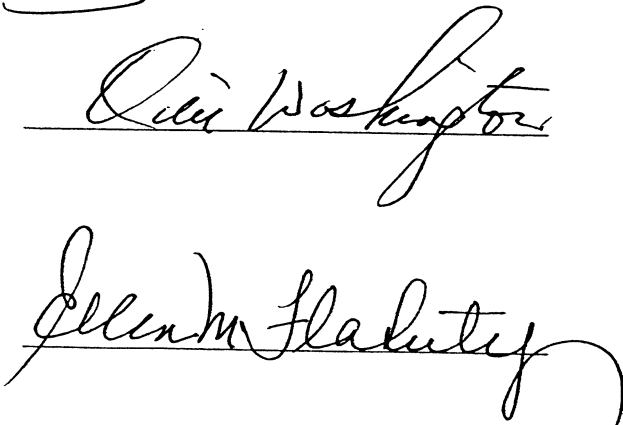 Washington
Ellen M Flaherty